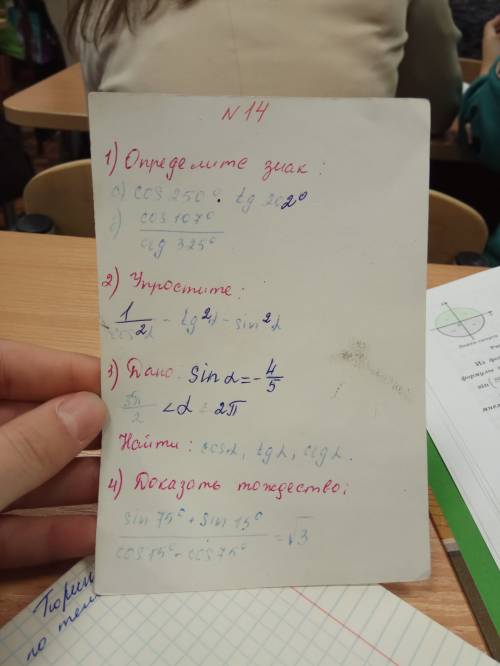 N 14
1) Определите знак:
а) cos 250° · tg 202°
б) cos 107°
ctg 325°
2) Упростите:
1/cos²α - tg²α - sin²α
3) Дано: sin α = - 4/5
3π/2 < α < 2π
Найти: cos α, tg α, ctg α.
4) Доказать тождество:
sin 75° + sin 15°
cos 15° - cos 75° = √3
по